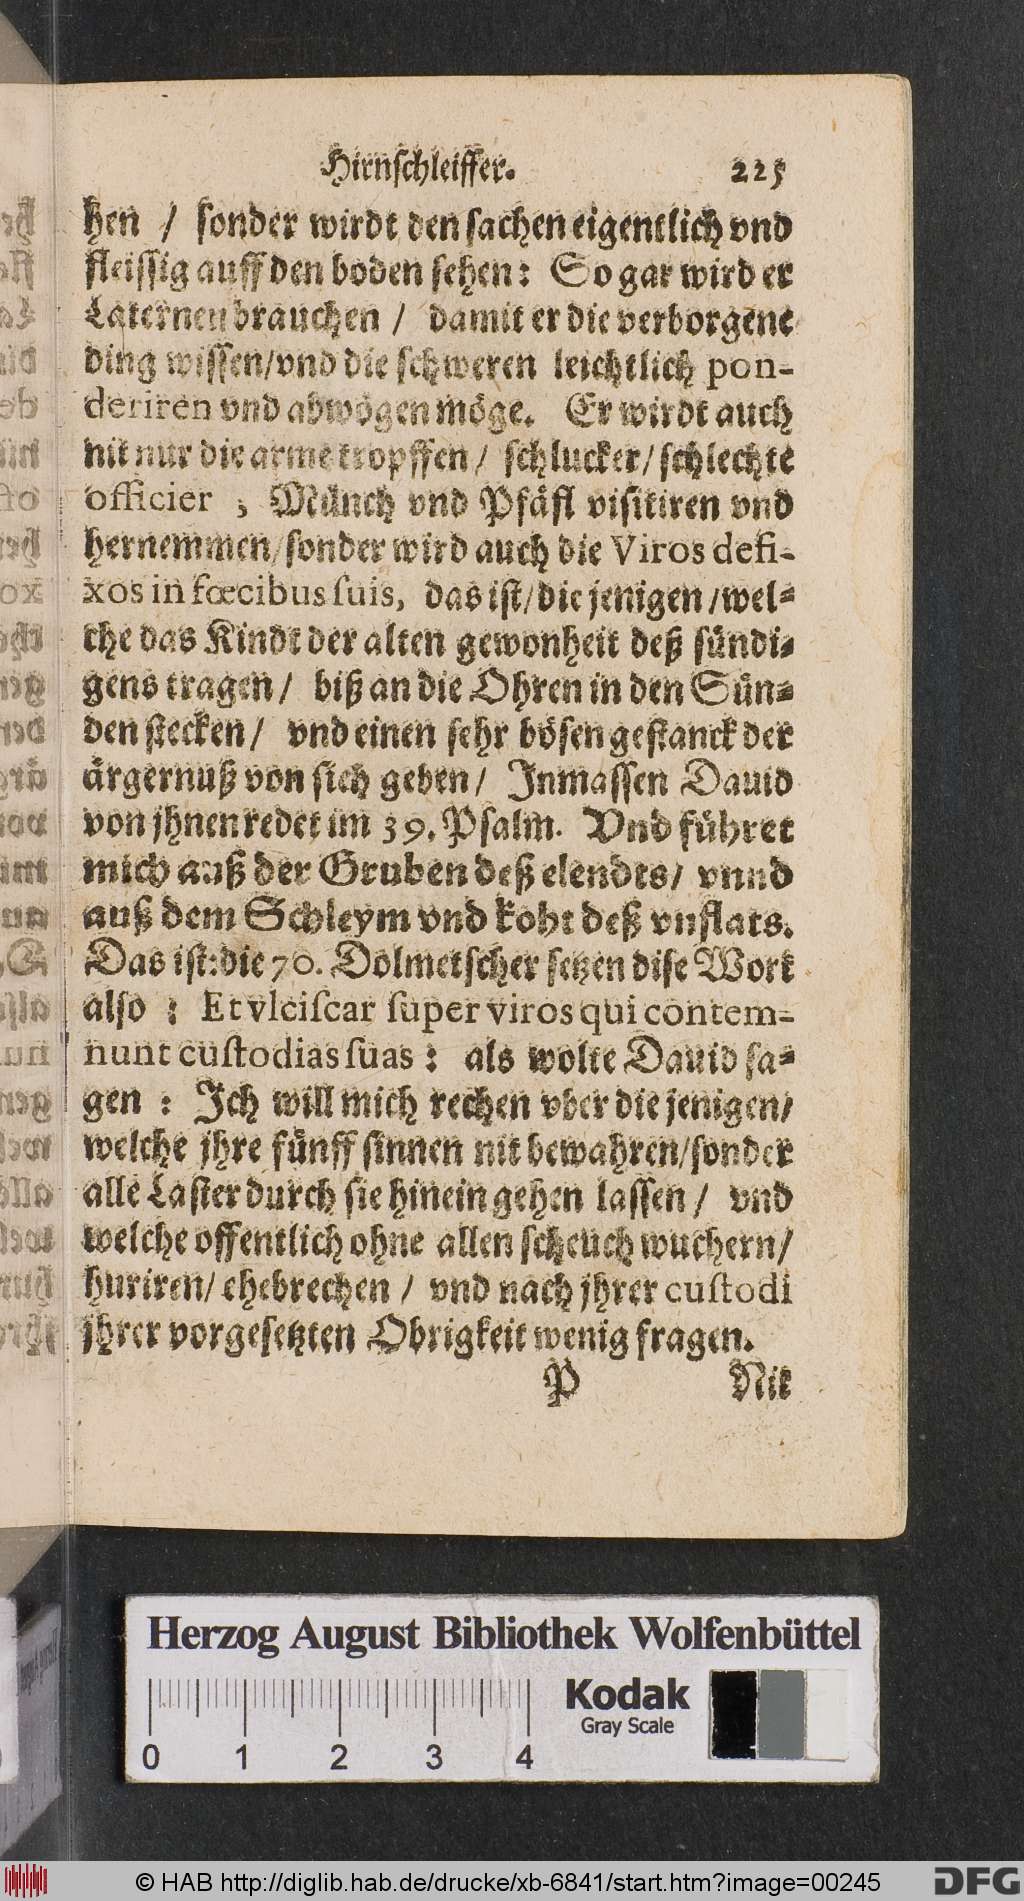 Hirnschleiffer. 225
hen / sonder wirdt den sachen eigentlich vnd
fleissig auff den boden sehen: So gar wird er
Laternen brauchen / damit er die verborgene
ding wissen/vnd die schweren leichtlich pon-
deriren vnd abwögen möge. Er wirdt auch
nit nur die arme tropffen/ schlucker/schlechte
officier , Münch vnd Pfäfl visitiren vnd
hernemmen/sonder wird auch die Viros defi-
xos in fœcibus ſuis, das ist/die jenigen /wel-
che das Kindt der alten gewonheit deß sündi-
gens tragen/ biß an die Ohren in den Sün-
den stecken/ vnd einen sehr bösen gestanck der
ärgernuß von sich geben/ Inmassen Dauid
von jhnen redet im 39. Psalm. Vnd führet
mich auß der Gruben deß elendts/ vnnd
auß dem Schleym vnd koht deß vnflats.
Das ist:die 70. Dolmetscher setzen dise Wort
also : Et vlciſcar ſuper viros qui contem-
nunt cuſtodias ſuas : als wolte Dauid sa-
gen : Ich will mich rechen vber die jenigen/
welche jhre fünff sinnen nit bewahren/sonder
alle Laster durch sie hinein gehen lassen/ vnd
welche offentlich ohne allen scheuch wuchern/
huriren/ ehebrechen / vnd nach jhrer cuſtodi
jhrer vorgesetzten Obrigkeit wenig fragen.
P Nit
Herzog August Bibliothek Wolfenbüttel
0 1 2 3 4
Kodak
Gray Scale
© HAB http://diglib.hab.de/drucke/xb-6841/start.htm?image=00245
DFG